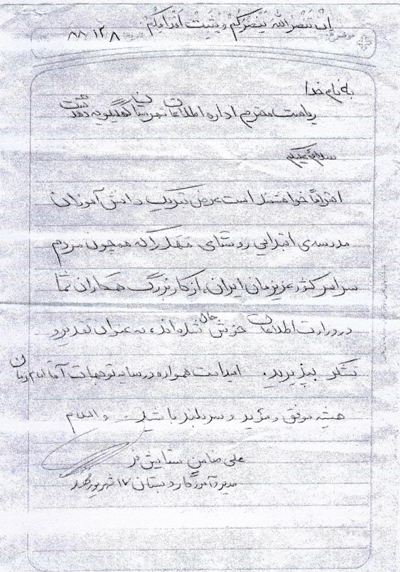 إن تنصرالله ینصرکم و یثبت أقدامکم
۸۸/۱۲/۸
به نام خدا
ریاست محترم اداره اطلاعات شهرستان کهگیلویه دهدشت
سلام علیکم
احتراماً خواهشمند است عرض تبریک دانش آموزان
مدرسه ی ابتدایی روستای را که همچون مردم
سراسر کشور عزیزمان ایران، از کار بزرگ همکاران شما
در وزارت اطلاعات خوشحال شده اند، به عنوان تقدیر و
تشکر بپذیرید. امیداست همواره در سایه توجهات آقا امام زمان
همیشه موفق و مؤید و سربلند باشید. والسلام
علی ضامن ستایش فر
مدیر و آموزگار دبستان ۱۷ شهریور